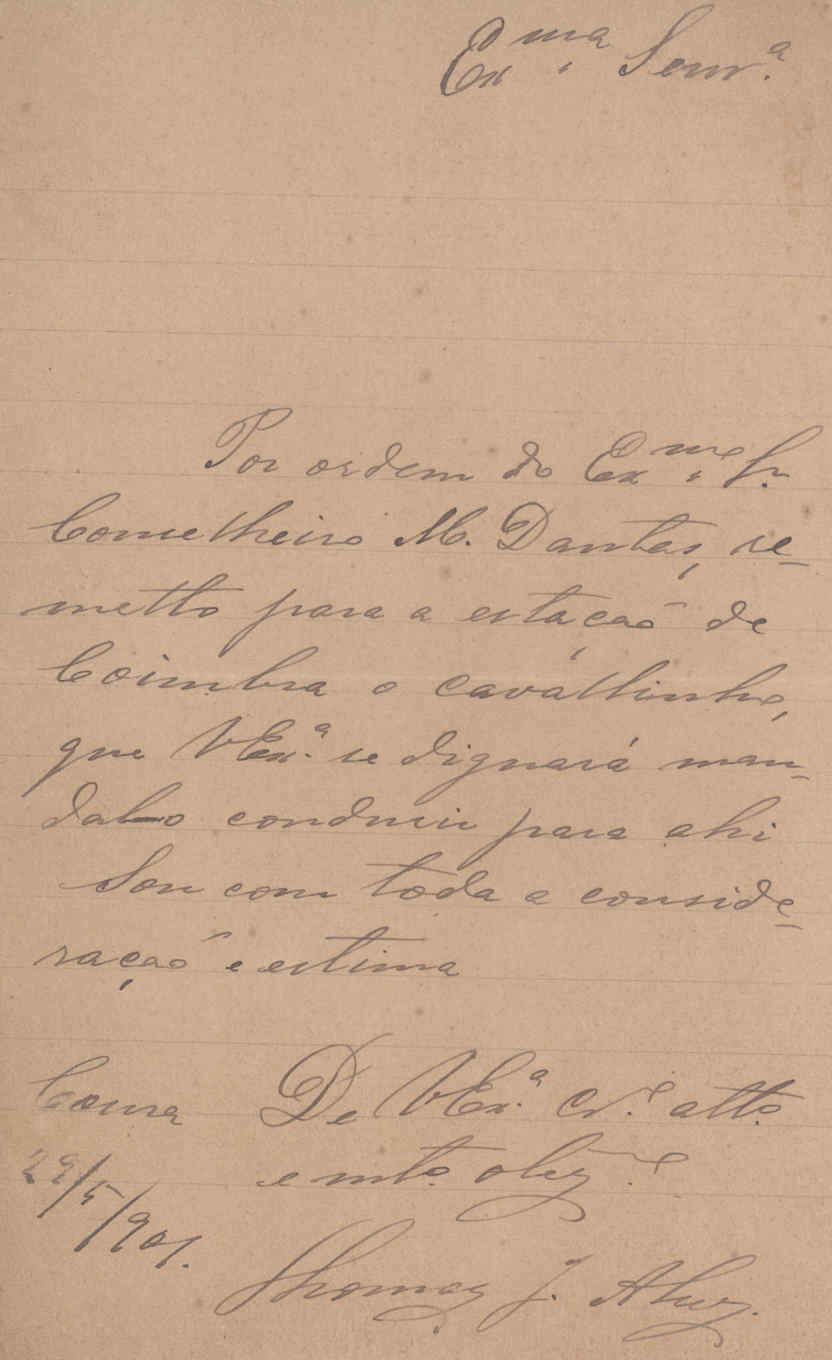 Ex.ma Senr.ª
Por ordem do Ex.mo Sr.
Conselheiro M. Dantas, re-
metto para a estação de
Coimbra o cavallinho,
que VEx.ª se dignará man-
dal-o conduzir para ahi
Sou com toda a conside-
ração e estima
Coura De VEx.ª cr.º att.º
e mt.º obg.º
29/5/901.
Thomaz J. Alvz.